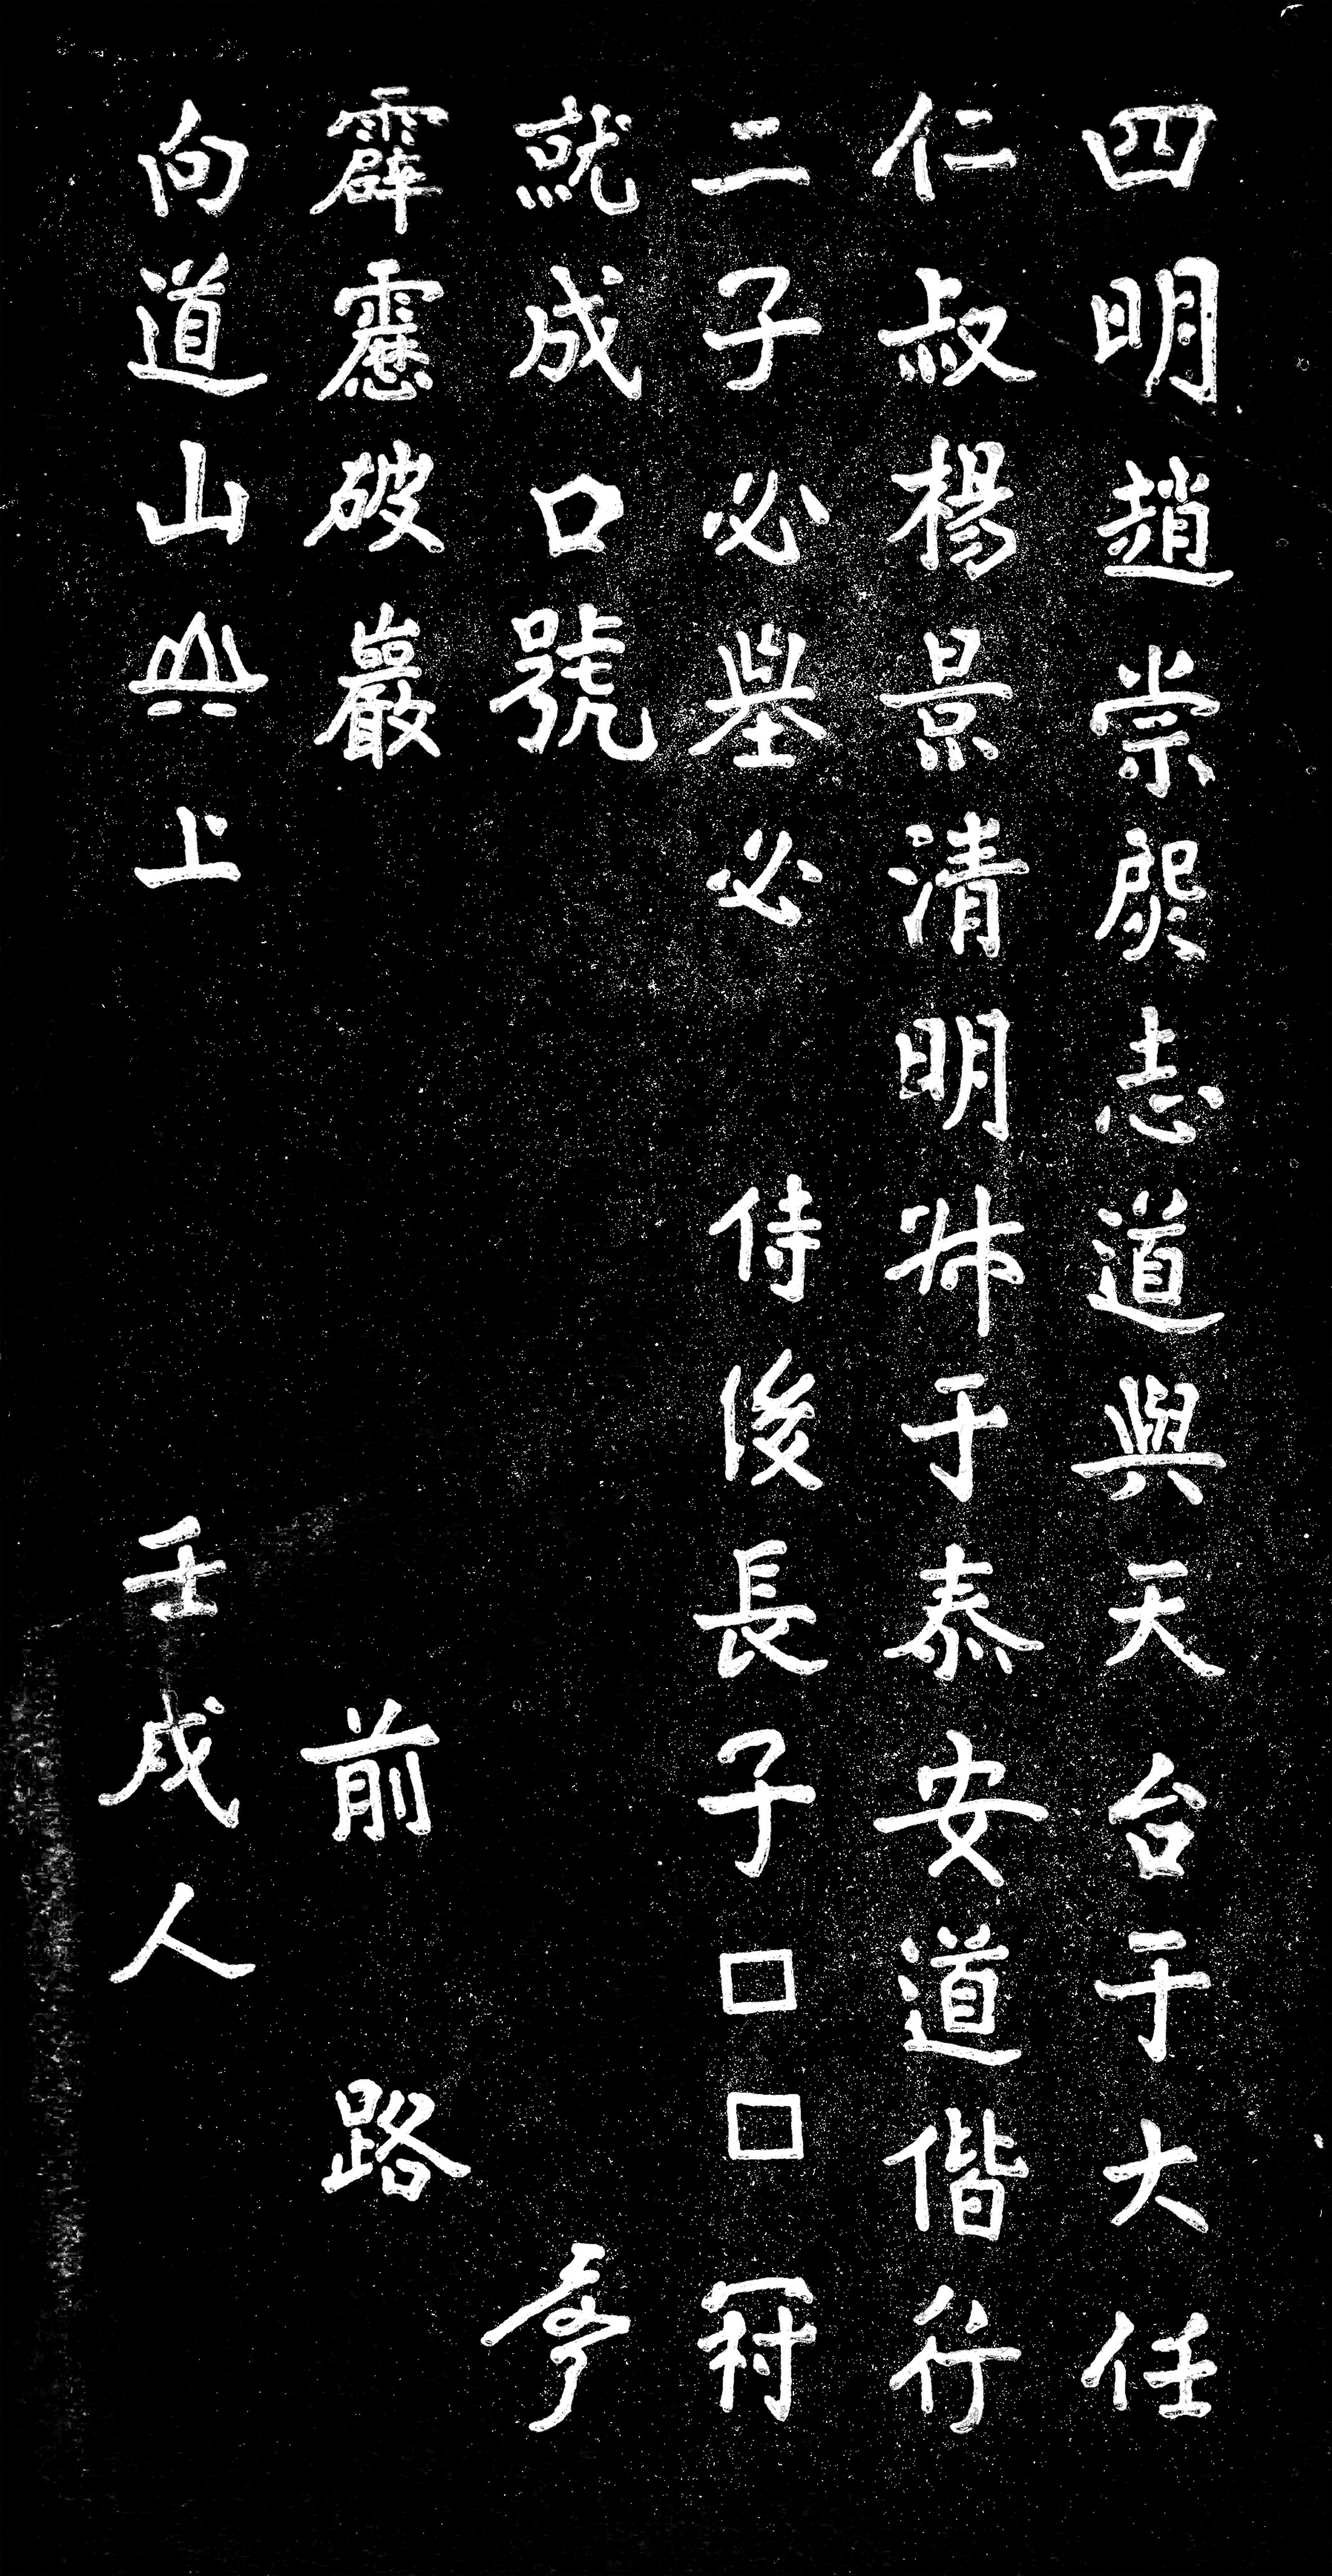 四明趙崇志道與天台于大任
仁叔楊景清明于泰安道偕行
二子必必 侍後長子□□
就成口號
霹靂破巖 前 路
向道山上 壬戌人